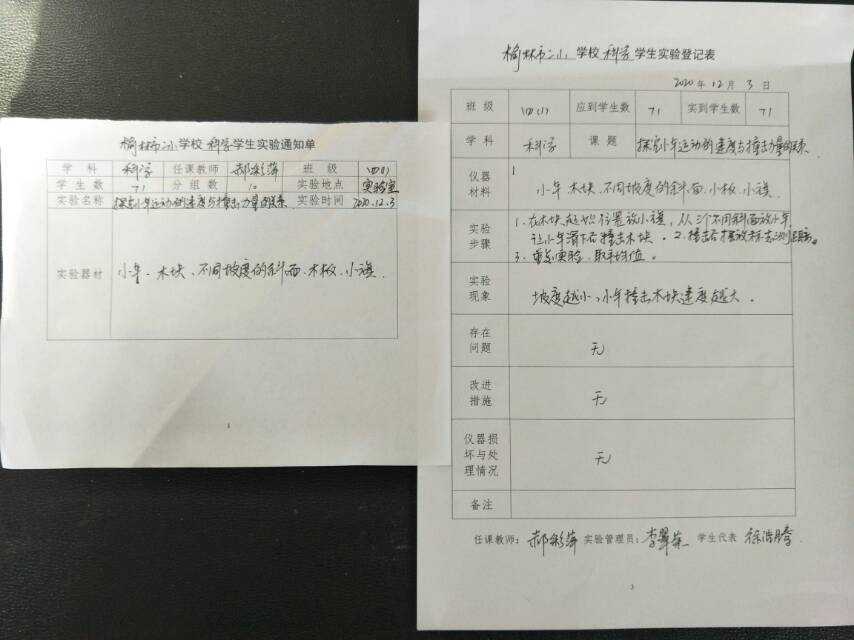 榆林市二小学校科学学生实验通知单
学科 科学 任课教师 郝彩萍 班级 四(1)
学生数 71 分组数 10 实验地点 实验室
实验名称 探究小车运动的速度与撞击力量的关系 实验时间 2020.12.3
实验器材 小车、木块、不同坡度的斜面、木板、小旗.
3
榆林市二小学校科学学生实验登记表
2020年12月3日
班级 四(1) 应到学生数 71 实到学生数 71
学科 科学 课题 探究小车运动的速度与撞击力量的关系.
仪器材料 小车 木块、不同坡度的斜面、小板、小旗.
实验步骤 1、在木块起始位置放小旗,从三个不同斜面放小车
让小车滑下后撞击木块。2、撞击后摆放标志测距离。
3、重复实验,取平均值。
实验现象 坡度越小,小车撞击木块速度越大。
存在问题 无
改进措施 无
仪器损坏与处理情况 无
备注
任课教师:郝彩萍 实验管理员:李翠 学生代表 徐浩腾
3